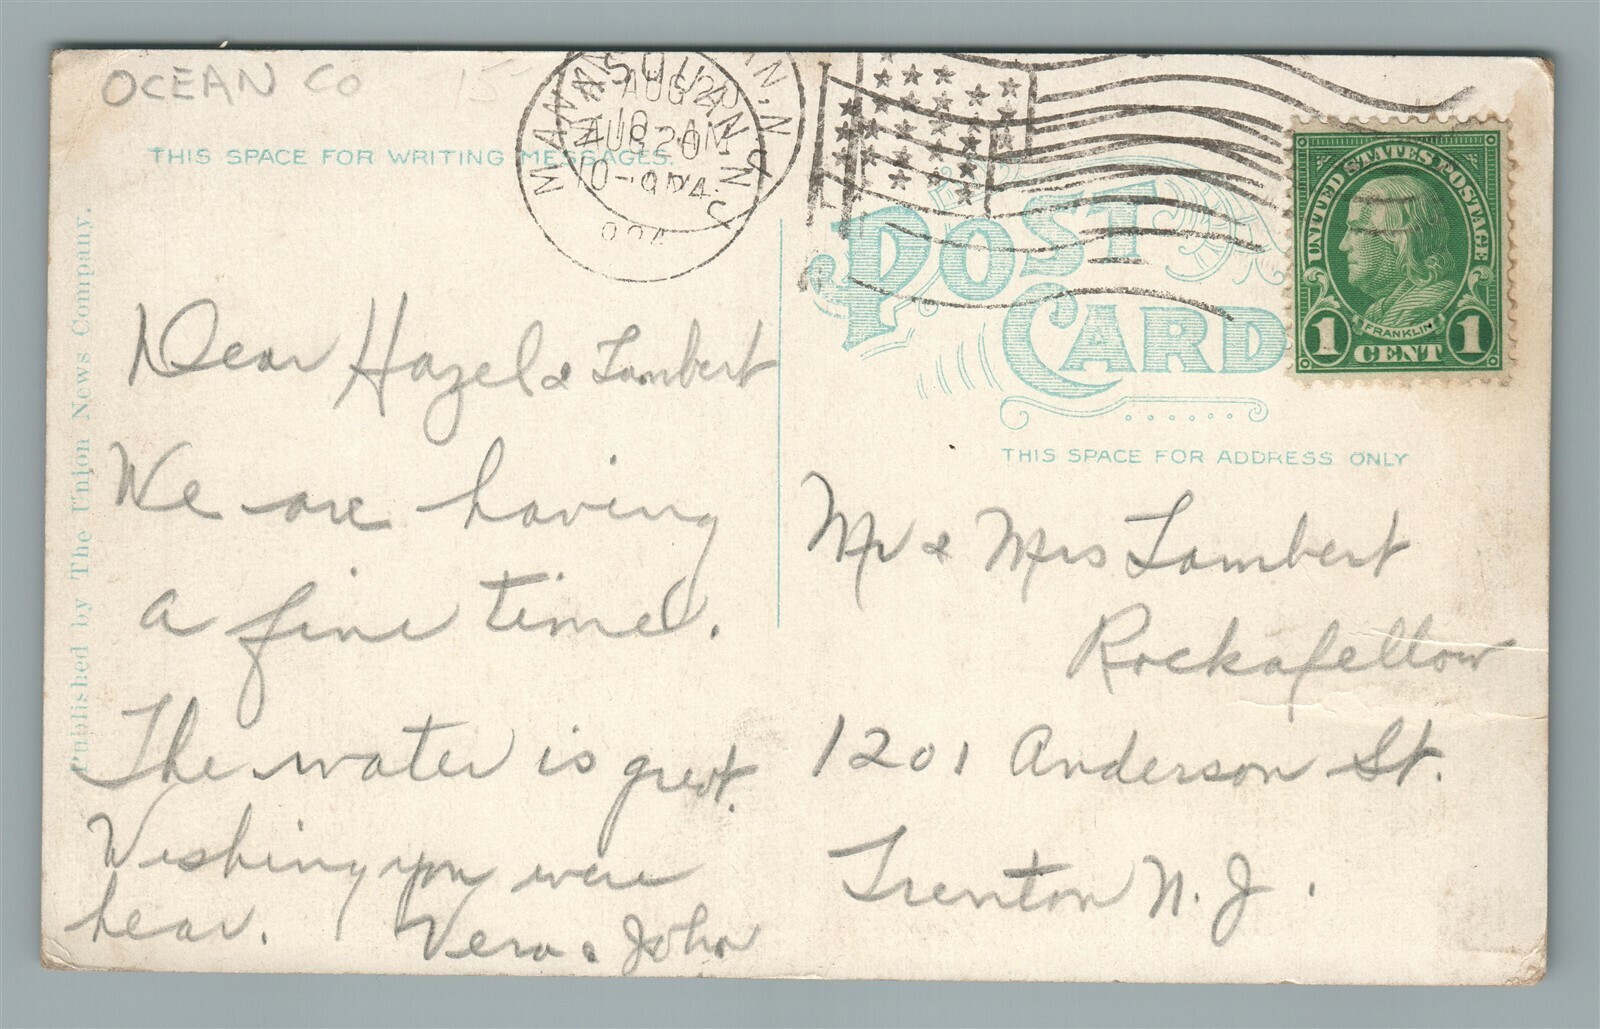 OCEAN CO 15
THIS SPACE FOR WRITING MESSAGES.
MANASQUAN, N.J.
AUG 20
POST
CARD
UNITED STATES POSTAGE
FRANKLIN
1 CENT 1
THIS SPACE FOR ADDRESS ONLY
Published by The Union News Company.
Dear Hazel & Lambert
We are having
a fine time.
The water is great.
Wishing you were
hear. Vera & John
Mr & Mrs Lambert
Rockafellow
1201 Anderson St.
Trenton N. J.